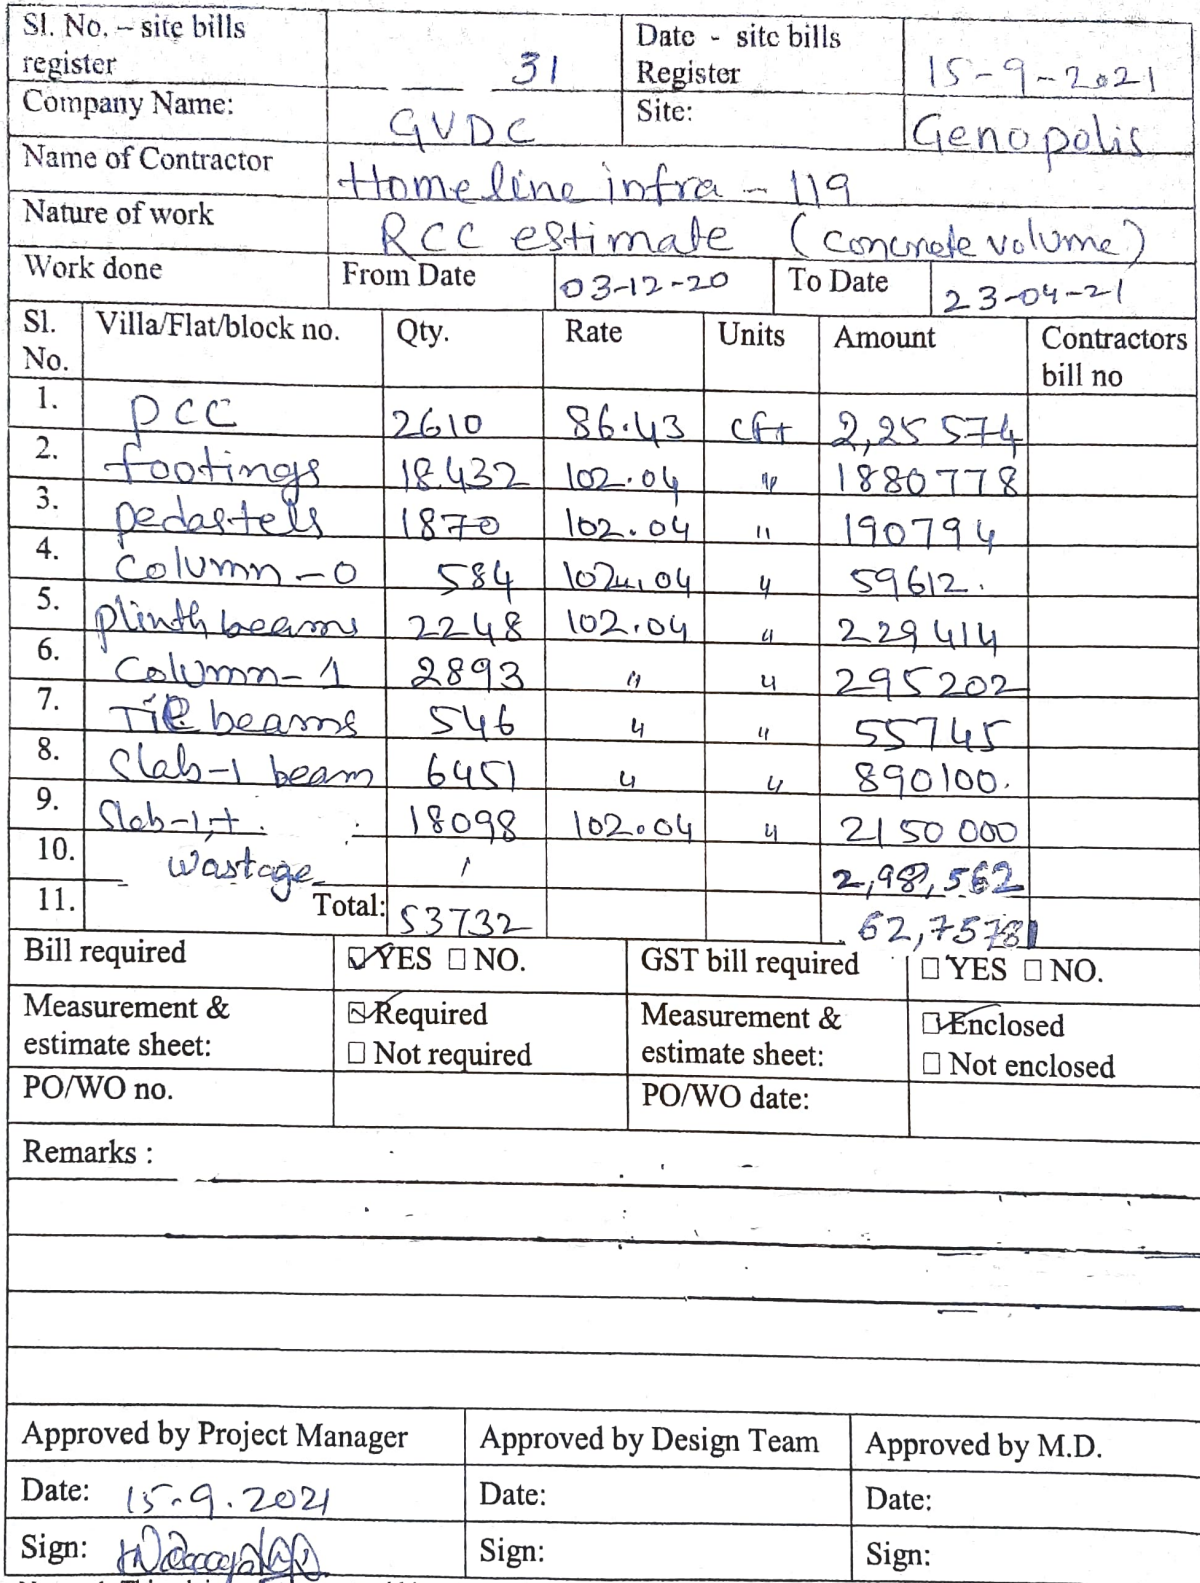 Sl. No. – site bills register 31 Date - site bills Register 15-9-2021
Company Name: GVDC Site: Genopolis
Name of Contractor Homeline infra - 119
Nature of work RCC estimate (concrete volume)
Work done From Date 03-12-20 To Date 23-04-21
Sl. No. Villa/Flat/block no. Qty. Rate Units Amount Contractors bill no
1. PCC 2610 86.43 cft 2,25 574
2. footings 18432 102.04 " 1880778
3. pedastels 1870 102.04 " 190794
4. Column-0 584 102.04 " 59612.
5. plinth beams 2248 102.04 " 229414
6. Column-1 2893 " " 295202
7. Tie beams 546 " " 55745
8. Slab-1 beam 6451 " " 890100.
9. Slab-1,+ 18098 102.04 " 2150000
10. wastage 2,98,562
11. Total: 53732 62,75781
Bill required ☑ YES ☐ NO. GST bill required ☐ YES ☐ NO.
Measurement & estimate sheet: ☑ Required Measurement & estimate sheet: ☑ Enclosed
☐ Not required ☐ Not enclosed
PO/WO no. PO/WO date:
Remarks :
Approved by Project Manager Approved by Design Team Approved by M.D.
Date: 15.9.2021 Date: Date:
Sign: Sign: Sign: